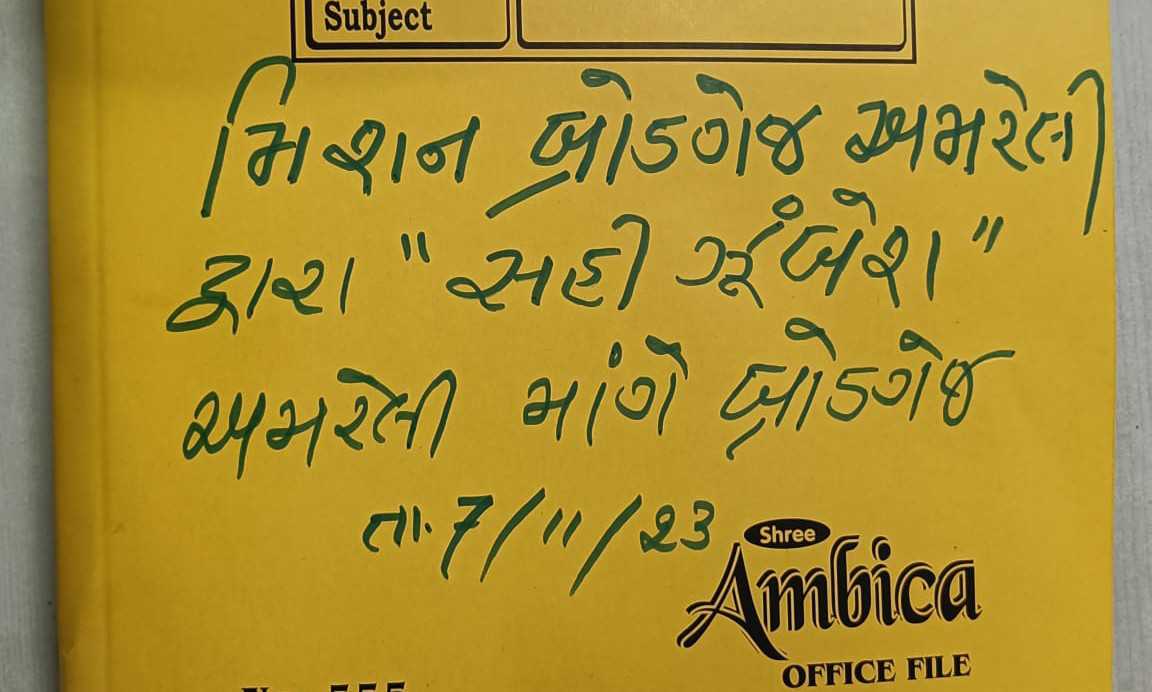 Subject
મિશન બ્રોડગેજ અમરેલી
દ્વારા "સહી ઝુંબેશ"
અમરેલી માંગે બ્રોડગેજ
તા. 7/11/23
Shree
Ambica
OFFICE FILE